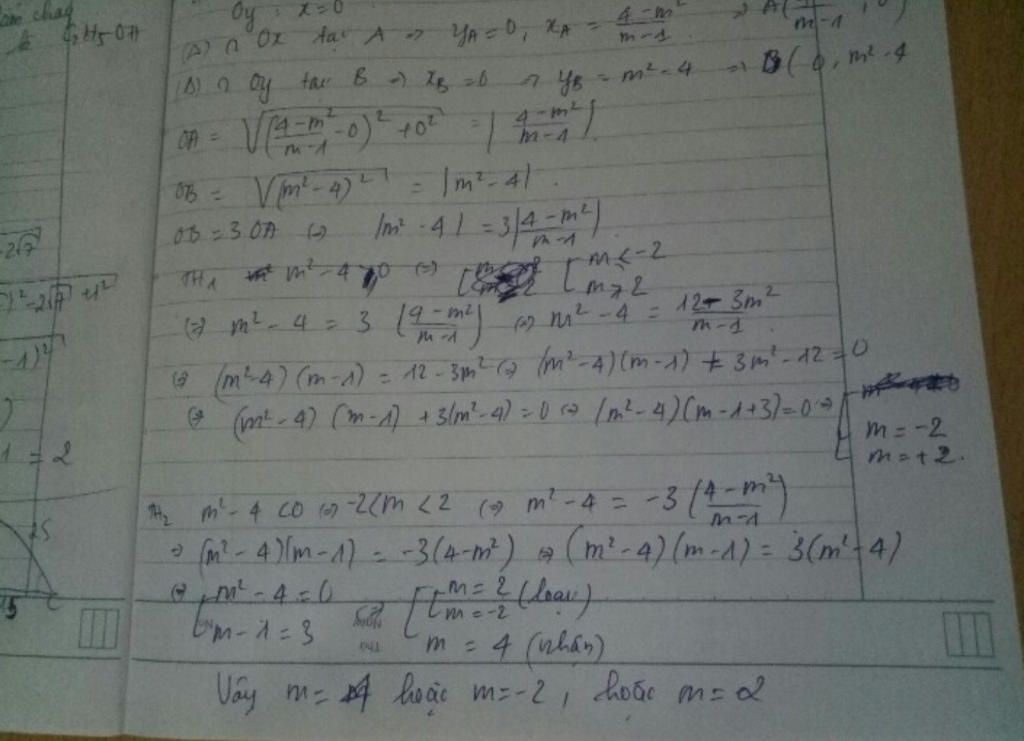 Oy : x = 0
(Δ) ∩ Ox tại A ⇒ y_A = 0, x_A = (4-m²)/(m-1) ⇒ A(
(Δ) ∩ Oy tại B ⇒ x_B = 0 ⇒ y_B = m² - 4 ⇒ B(0, m² - 4
OA = √(((4-m²)/(m-1) - 0)² + 0²) = |(4-m²)/(m-1)|
OB = √((m²-4)²) = |m² - 4|.
OB = 3OA ⇔ |m² - 4| = 3|(4-m²)/(m-1)|
TH1 m² - 4 ⩾ 0 ⇔ [ m ⩽ -2
m ⩾ 2
⇔ m² - 4 = 3 ((4-m²)/(m-1)) ⇔ m² - 4 = (12 - 3m²)/(m-1)
⇔ (m²-4)(m-1) = 12 - 3m² ⇔ (m²-4)(m-1) + 3m² - 12 = 0
⇔ (m²-4)(m-1) + 3(m²-4) = 0 ⇔ (m²-4)(m-1+3) = 0 ⇒ [
m = -2
m = +2.
TH2 m² - 4 < 0 ⇔ -2 < m < 2 ⇔ m² - 4 = -3 ((4-m²)/(m-1))
⇒ (m²-4)(m-1) = -3(4-m²) ⇔ (m²-4)(m-1) = 3(m²-4)
⇔ [ m² - 4 = 0 ⇔ [ [ m = 2
m = -2 (loại)
m - 1 = 3
m = 4 (nhận)
Vậy m = 4 hoặc m = -2, hoặc m = 2
C₂H₅OH
-2√7
)² - 2√7 + 1²
-1)²
1 = 2
5
C